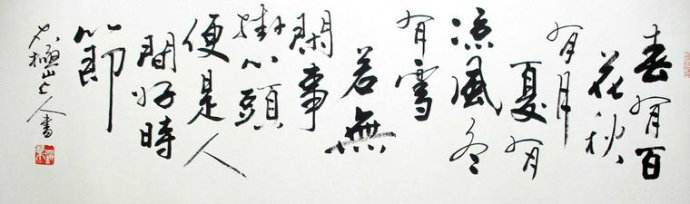 春有百
花秋
有月
夏有
涼風冬
有雪
若無
閑事
掛心頭
便是人
間好時
節
極山上人書